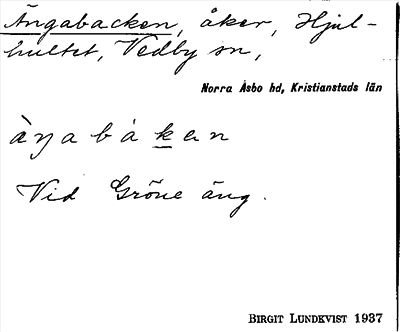 Ängabacken, åker, Hjul-
hultet, Vedby sn,
Norra Åsbo hd, Kristianstads län
àŋabàkan
Vid Gröne äng.
BIRGIT LUNDKVIST 1937